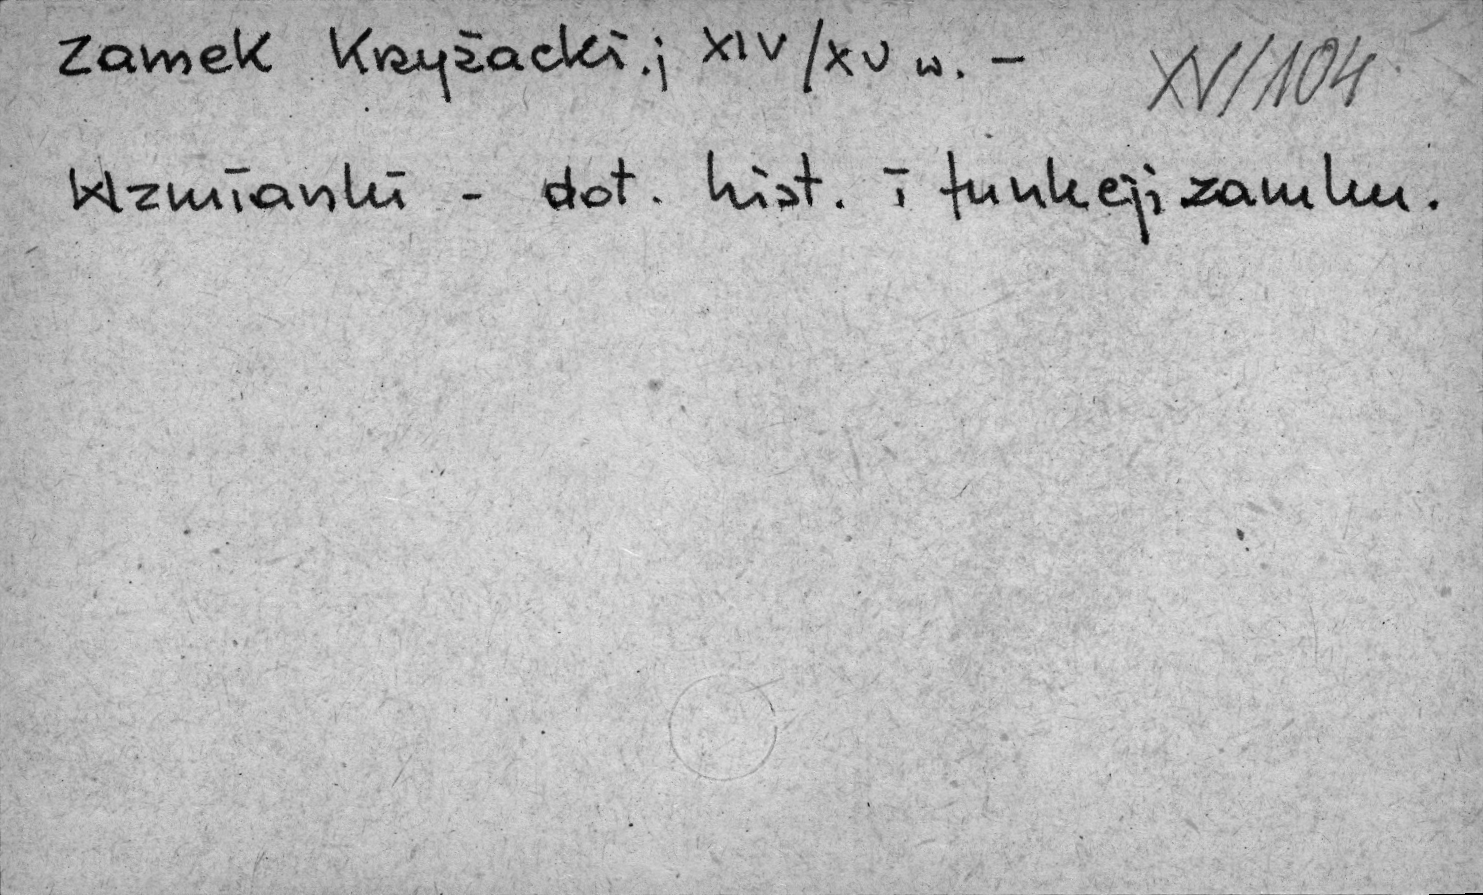 Zamek Krzyżacki.; XIV/XV w. – XV/104
Wzmianki - dot. hist. i funkcji zamku.